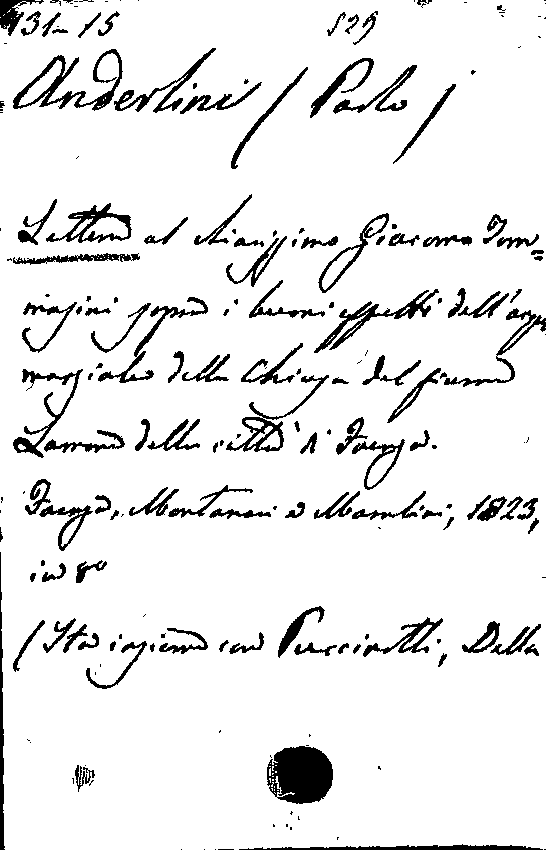 131-15 529
Anderlini (Paolo)
Lettera al chiarissimo Giacomo Tom=
masini sopra i buoni effetti dell'acqua
marziale della Chiusa del fiume
Lamone della città di Faenza.
Faenza, Montanari e Marabini, 1823,
in 8º
(Sta insieme con Puccinotti, Della